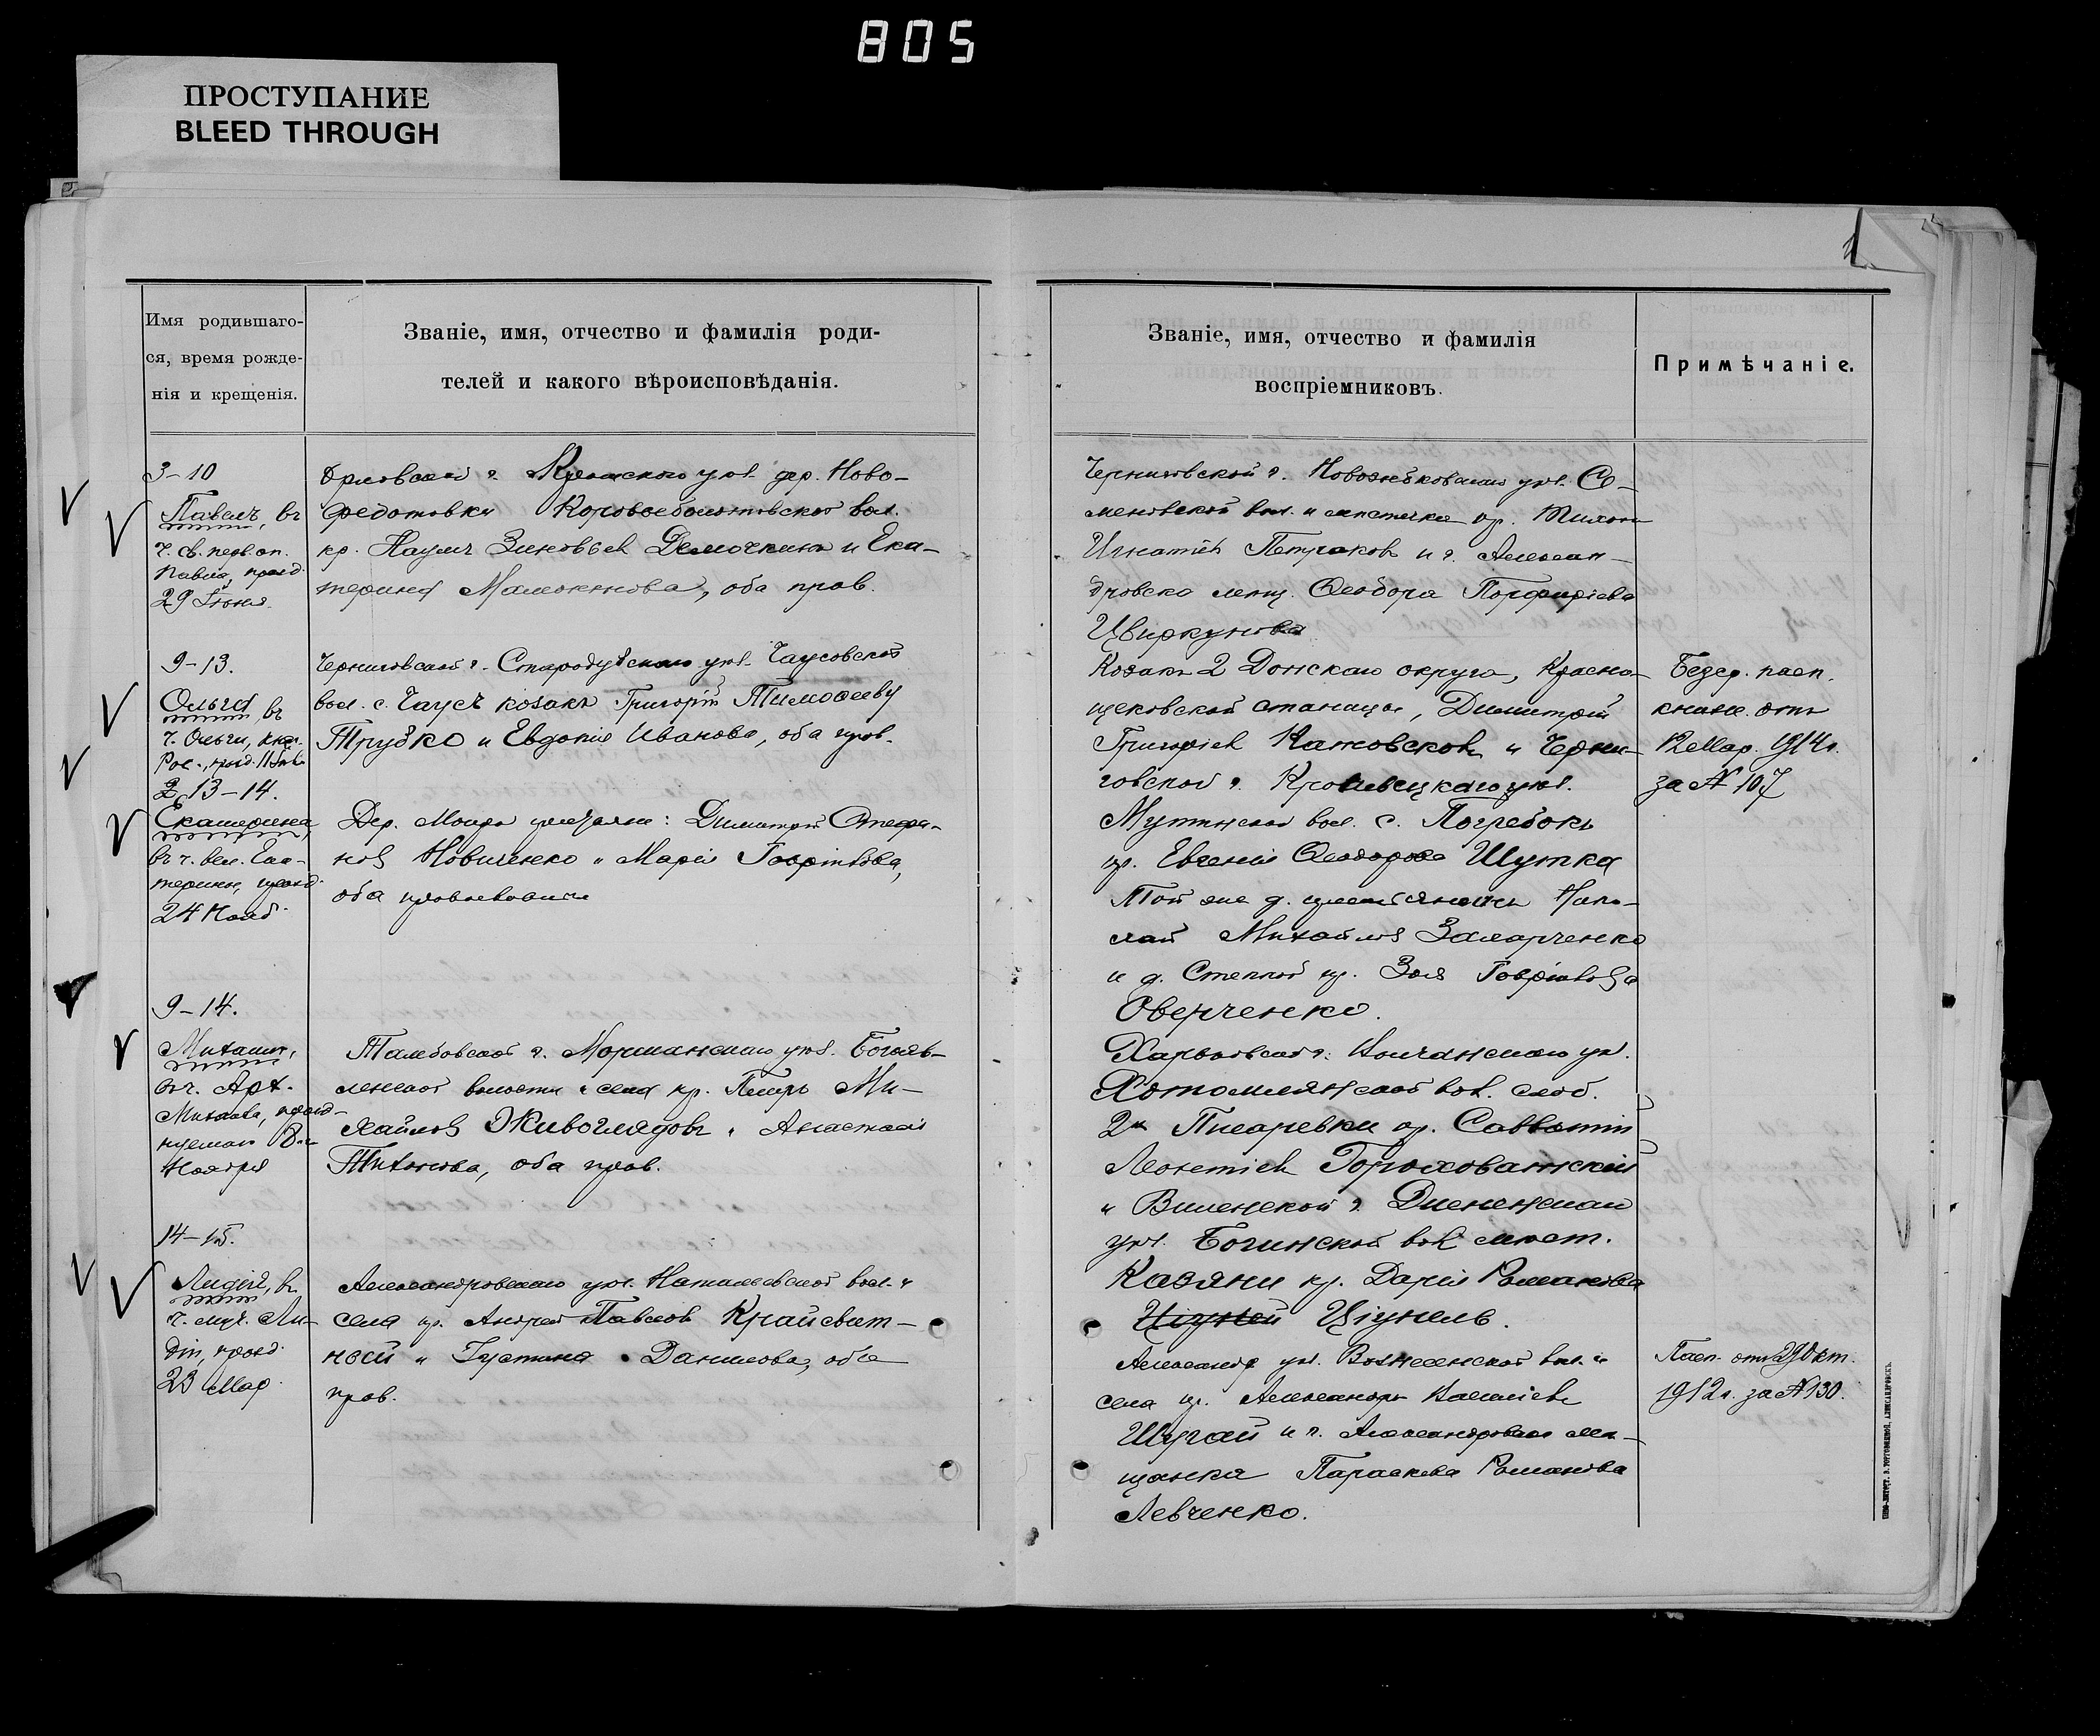 805
ПРОСТУПАНИЕ
BLEED THROUGH
Имя родившаго-
ся, время рожде-
нія и крещенія.
Званіе, имя, отчество и фамилія роди-
телей и какого вѣроисповѣданія.
3-10
Павелъ, въ
ч. св. перв. ап.
Павла, празд.
29 Іюня.
Орловской г. уѣз. дер. Ново-
федотовки вол.
кр. Наумъ Зиновьев и Ека-
терина, оба прав.
9-13.
Ольга, въ
ч. Ольги, княг.
Рос., празд. 11 Іюл.
Черниговской г. Стародубскаго уѣз. Чаусовской
вол. с. Чаусъ козакъ Григорій Тимоѳеевъ
Трубко и Евдокія Иванова, оба прав.
2, 13-14.
Екатерина,
въ ч. вел. Ека-
терины, празд.
24 Нояб.
Дер. Мокро крестьяне: Димитрій Стефа-
новъ Новиченко и Марія Гавріилова,
оба православные
9-14.
Михаилъ,
въ ч. Арх.
Михаила, празд-
нуемаго 8-го
Ноября
Тамбовской г. Моршанскаго уѣз. Богояв-
ленской волости и села кр. Петръ Ми-
хайловъ Живоглядовъ и Анастасія
Тихонова, оба прав.
14-15.
Лидія, въ
ч. муч. Ли-
діи, празд.
23 Мар.
Александровскаго уѣз. Натальевской вол. и
села кр. Андрей Павловъ Крайсвит-
ной и Іустина Данилова, оба
прав.
Званіе, имя, отчество и фамилія
воспріемниковъ.
Примѣчаніе.
Черниговской г. Новозыбковскаго уѣз. Се-
меновской вол. и мѣстечка кр. Тихонъ
Игнатіевъ Петраковъ и г. Алексан-
дровска мѣщ. Ѳеодора Порфиріева
Цвиркунова
Козакъ 2 Донскаго округа, Красно-
щековской станицы, Димитрій
Григоріевъ Катовсковъ и Черни-
говской г. Кролевецкаго уѣз.
Мутинской вол. с. Погребокъ
кр. Евгенія Ѳеодорова Шутка
Безср. пасп.
книж. отъ
12 Мар. 1914 г.
за № 107
Той же д. крестьянинъ Нико-
лай Михайловъ Захарченко
и д. Степной кр. Зоя Гавріилова
Оверченко.
Харьковской г. Волчанскаго уѣз.
Хотомлянской вол. слоб.
2й Писаревки кр. Савватій
Леонтіевъ Гороховатскій
и Виленской г. Дисненскаго
уѣз. Богинской вол. мѣст.
Казяны кр. Дарія Романова
Ціунель.
Александр. уѣз. Вознесенской вол. и
села кр. Александръ Василіевъ
Шугай и г. Александровска мѣ-
щанка Параскева Романова
Левченко.
Пасп. отъ 29 Окт.
1912 г. за № 130.